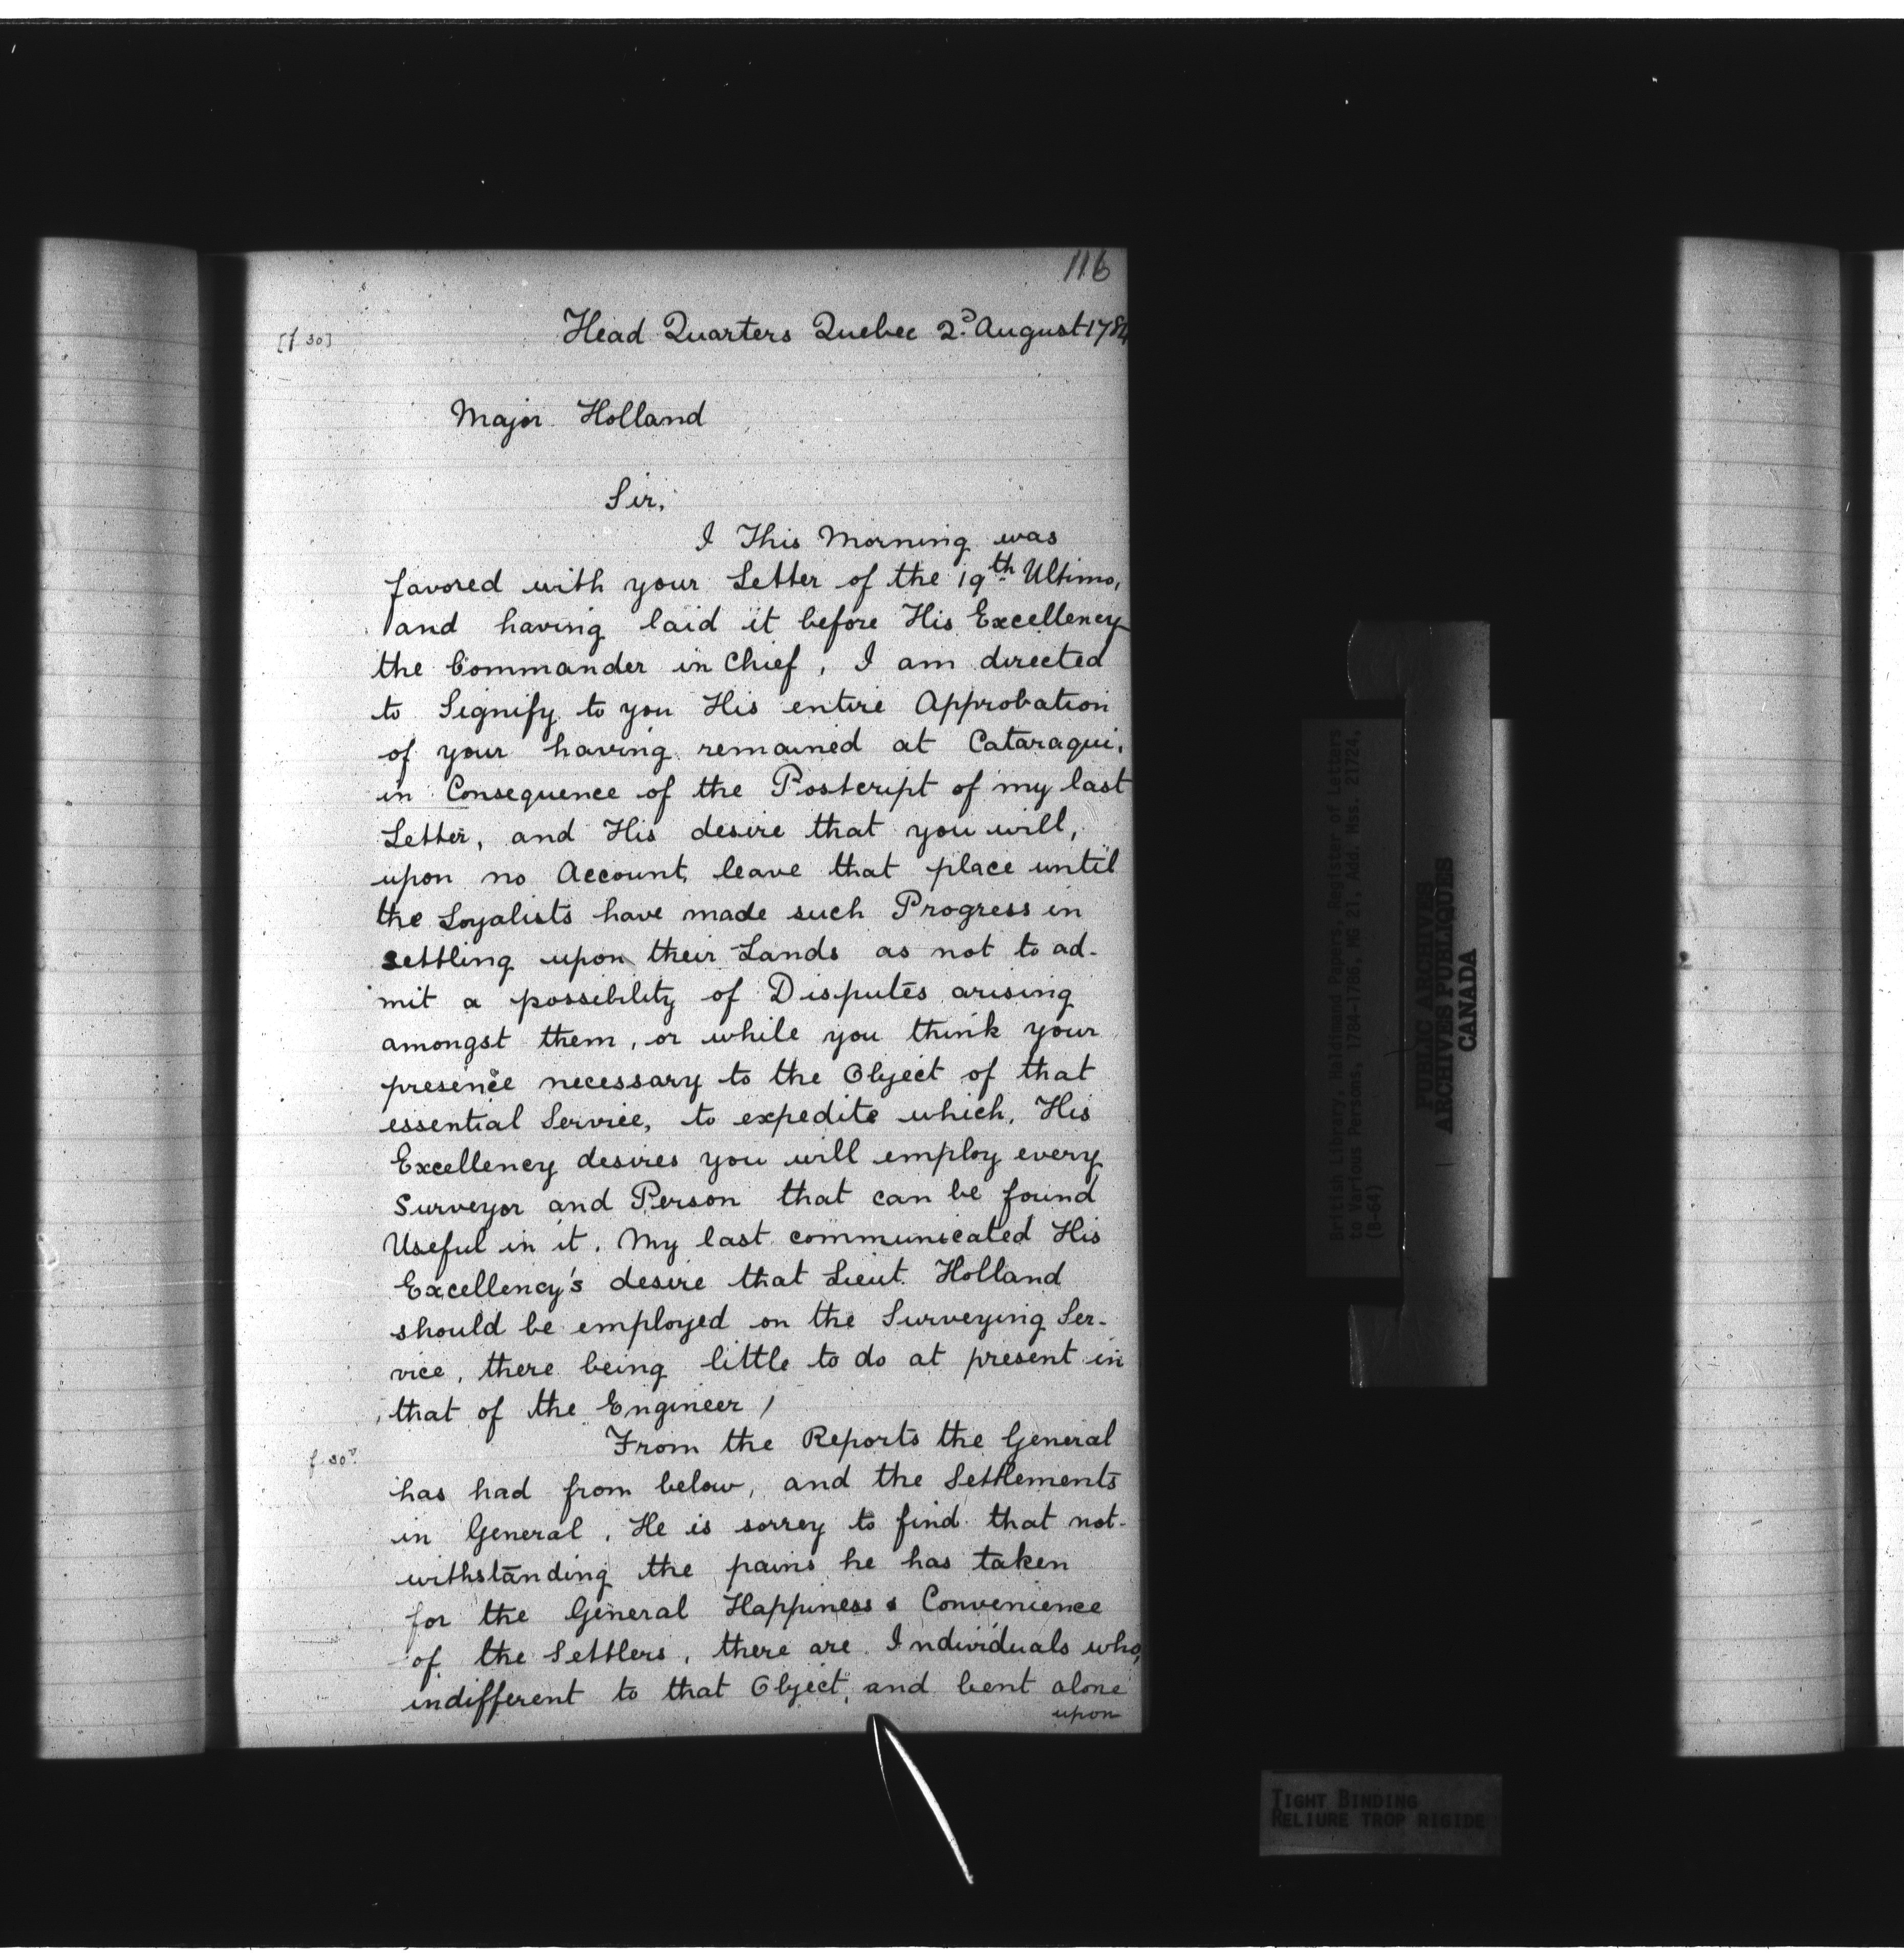 116
[f 30]
Head Quarters Quebec 2d August 1784
Major Holland
Sir,
I This Morning was
favored with your Letter of the 19th Ultimo,
and having laid it before His Excellency
the Commander in Chief, I am directed
to Signify to you His entire Approbation
of your having remained at Cataraqui,
in Consequence of the Postcript of my last
Letter, and His desire that you will,
upon no Account leave that place until
the Loyalists have made such Progress in
settling upon their Lands as not to ad-
mit a possibility of Disputes arising
amongst them, or while you think your
presence necessary to the Object of that
essential Service, to expedite which, His
Excellency desires you will employ every
Surveyor and Person that can be found
Useful in it. My last communicated His
Excellency's desire that Lieut. Holland
should be employed on the Surveying Ser-
vice, there being little to do at present in
that of the Engineer /
f. 30v
From the Reports the General
has had from below, and the Settlements
in General, He is sorrey to find that not-
withstanding the pains he has taken
for the General Happiness & Convenience
of the Settlers, there are Individuals who,
indifferent to that Object, and bent alone
upon
British Library, Haldimand Papers, Register of Letters
to Various Persons, 1784-1786, MG 21, Add. Mss. 21724,
(B-64)
PUBLIC ARCHIVES
ARCHIVES PUBLIQUES
CANADA
TIGHT BINDING
RELIURE TROP RIGIDE